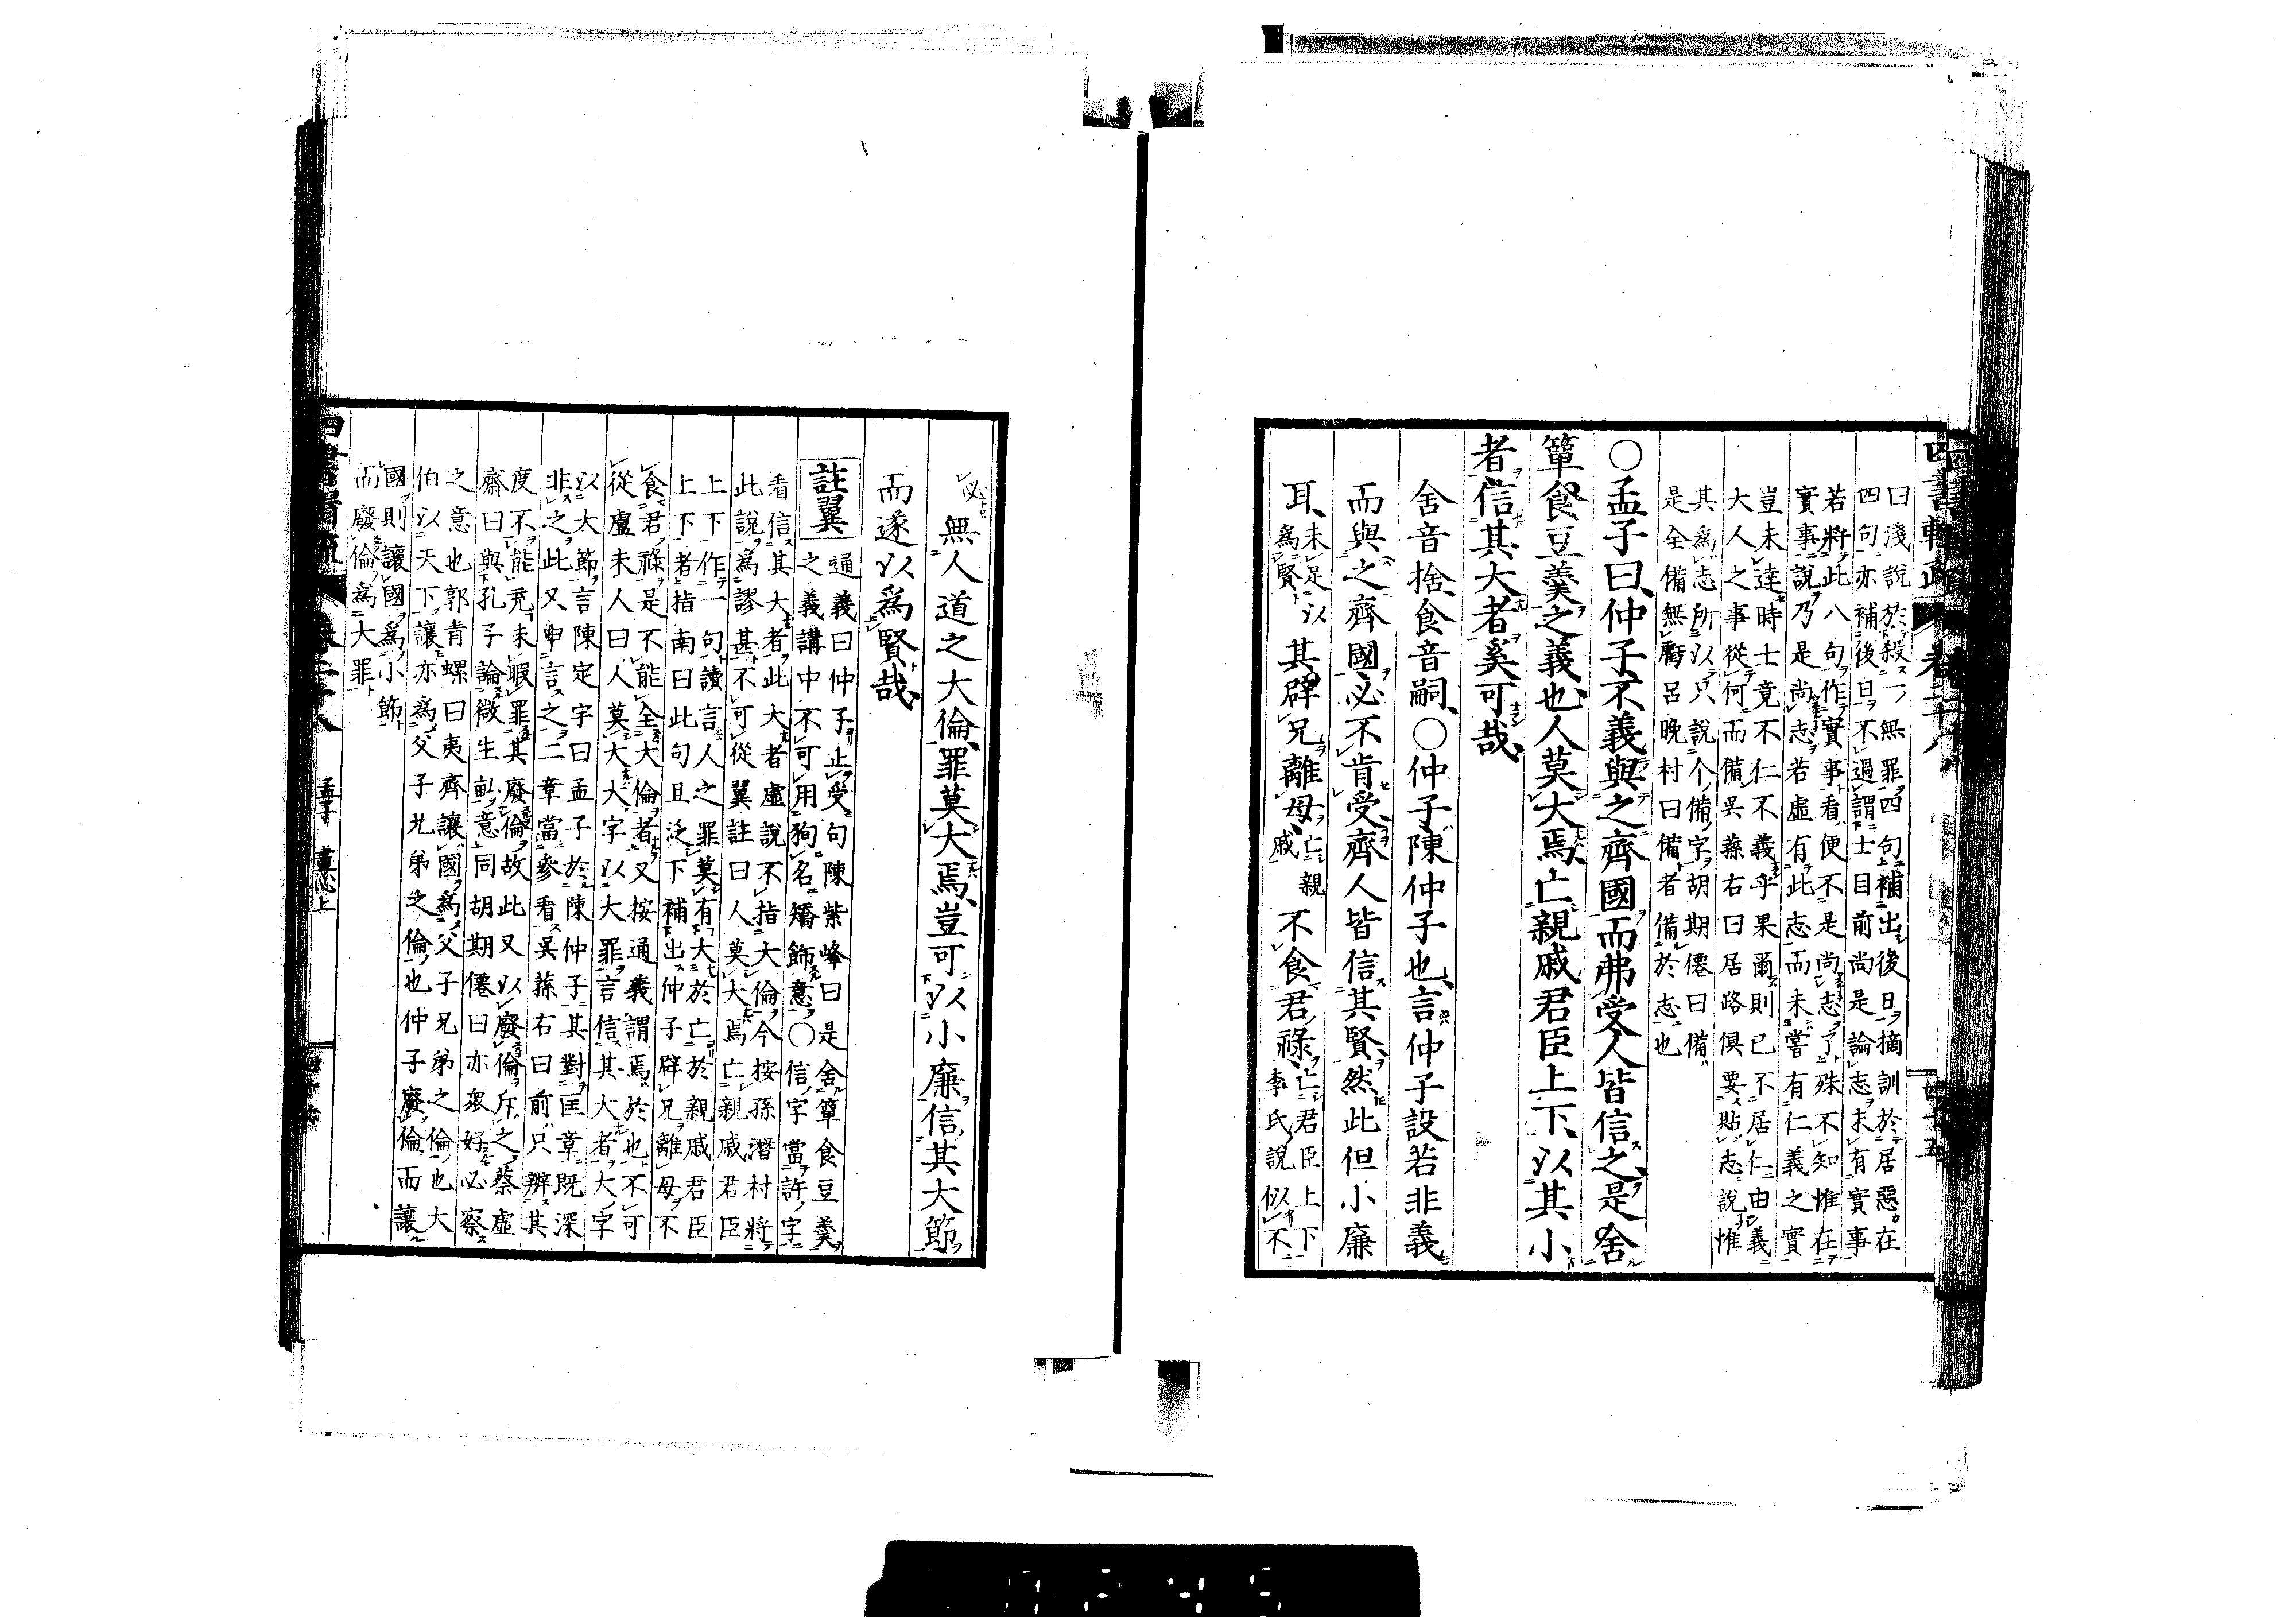 曰淺說於殺一無罪四句補出後日摘訓於居惡在
四句亦補後日不過謂士目前尚是論志未有實事
若將此八句作實事看便不是尚志了殊不知惟在
實事說乃是尚志若虛有此志而未嘗有仁義之實
豈未達時士竟不仁不義乎果爾則已不居仁由義
大人之事從何而備吳蓀右曰居路俱要貼志說惟
其為志所以只說个備字胡期僊曰備
是全備無虧呂晚村曰備者備於志也
○孟子曰仲子不義與之齊國而弗受人皆信之是舍
簞食豆羹之義也人莫大焉亡親戚君臣上下以其小
者信其大者奚可哉
舍音捨食音嗣○仲子陳仲子也言仲子設若非義
而與之齊國必不肯受齊人皆信其賢然此但小廉
耳未足以為賢其辟兄離母亡親戚不食君祿亡君臣上下李氏說似不
必無人道之大倫罪莫大焉豈可以小廉信其大節
而遂以為賢哉
註翼
通義曰仲子止受句陳紫峰曰是舍簞食豆羹
之義講中不可用狗名矯飾意○信字當許字
看信其大者此大者虛說不指大倫今按孫潛村將
此說為謬甚不可從翼註曰人莫大焉亡親戚君臣
上下作一句讀言人之罪莫有大於亡於親戚君臣
上下者指南曰此句且泛下補出仲子辟兄離母不
食君祿是不能全大倫者又按通義謂焉於也不可
從盧未人曰人莫大大字以大罪言信其大者大字
以大節言陳定宇曰孟子於陳仲子其對匡章既深
非之此又申言之二章當參看吳蓀右曰前只辨其
度不能充未暇罪其廢倫故此又以廢倫斥之蔡虛
齋曰與孔子論微生畝意同胡期僊曰亦眾好必察
之意也郭青螺曰夷齊讓國為父子兄弟之倫也大
伯以天下讓亦為父子兄弟之倫也仲子廢倫而讓
國則讓國為小節
而廢倫為大罪
孟子 盡心上